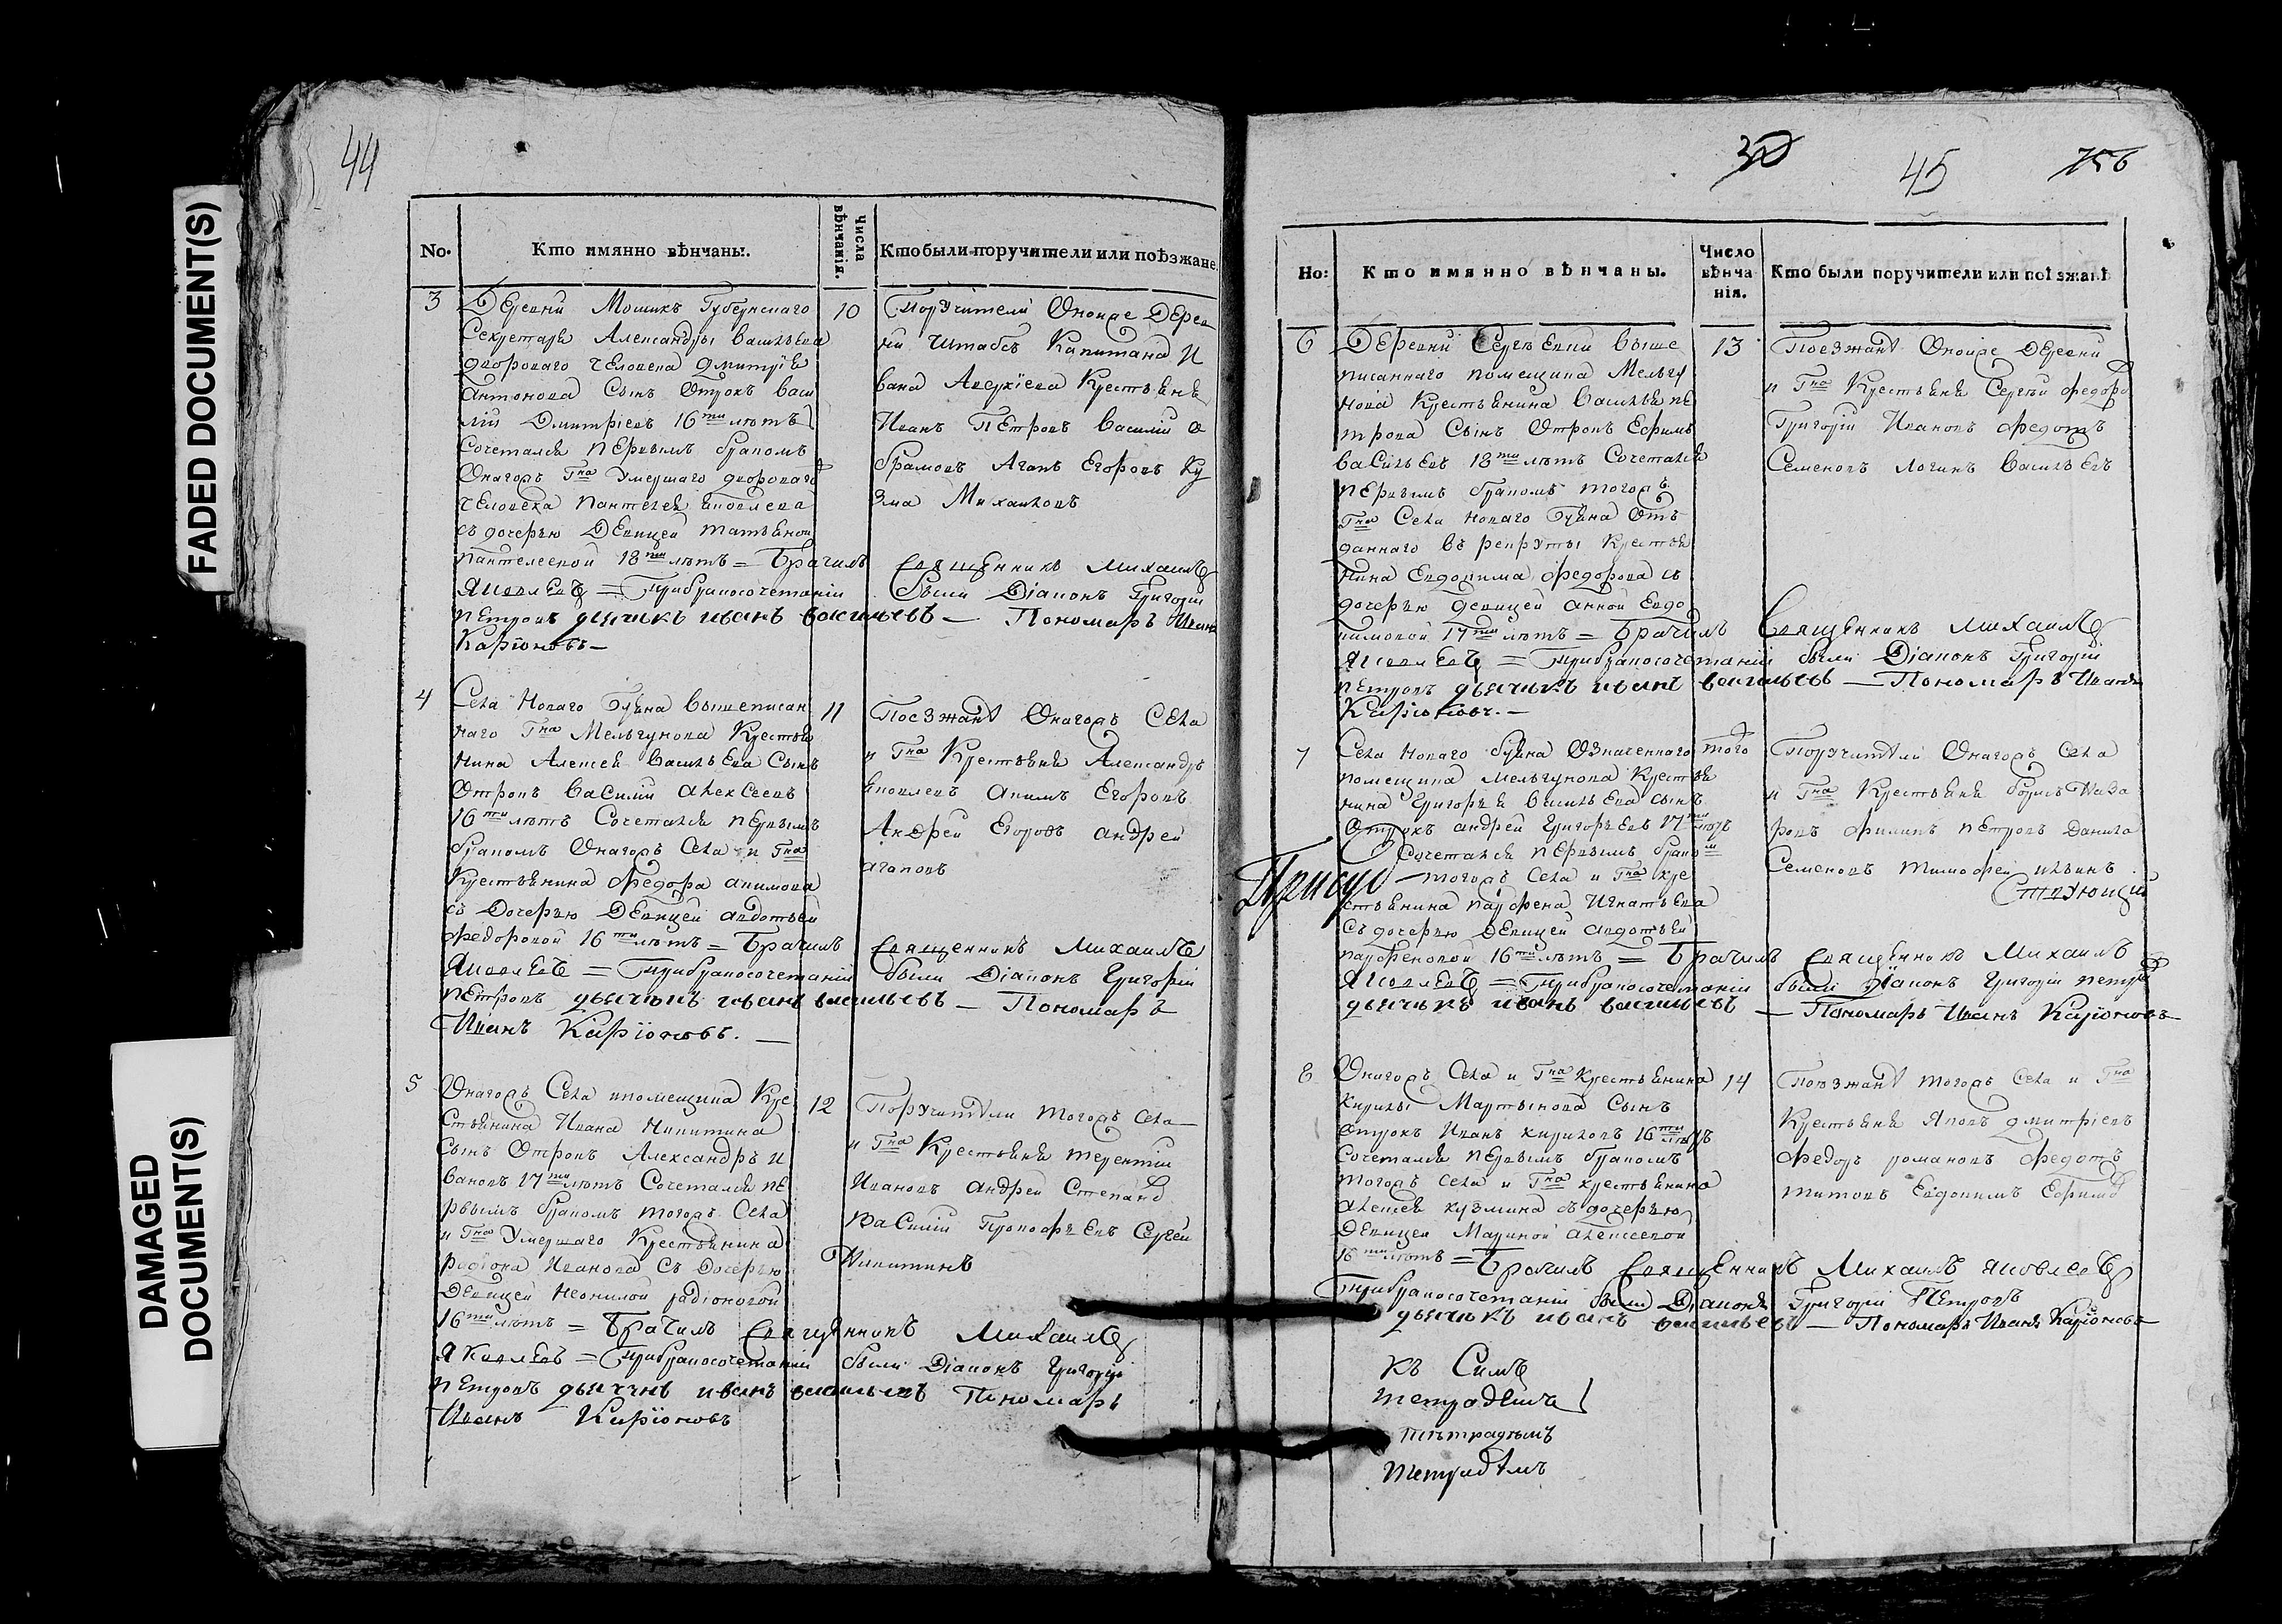 FADED DOCUMENT(S)
DAMAGED
DOCUMENT(S)
44
No.
Кто имянно вѣнчаны.
Числа
вѣнчанія.
Кто были поручители или поѣзжане.
3
Деревни Мошикъ Губернскаго
Секретаря Александры Васильева
дворового человека Дмитрія
Антонова Сынъ Отрокъ Васи
лій Дмитріевъ 16 ти лѣтъ
Сочетался первымъ бракомъ
Онагожъ Гна Умершаго двороваго
человека Пантелея Яковлева
съ дочерью Девицей Татьяной
Пантелеевой 18 ти лѣтъ = Брачилъ Священникъ Михаилъ
Яковлевъ = При бракосочетаніи были Діаконъ Григорій
Петровъ дьячикъ иванъ васильевъ — Пономарь Иванъ
Каріоновъ —
10
Поручители Оноиже Дерев
ни Штабсъ Капитана И
вана Аверкіева Крестьяня
Иванъ Петровъ Василий А
брамовъ Агапъ Егоровъ Ку
зма Михаиловъ
4
Села Новаго Буяна вышеписан
наго Гна Мельгунова Крестья
нина Алексея Васильева Сынъ
Отрокъ Василий Алексеевъ
16 ти лѣтъ Сочетался первымъ
бракомъ Онагожъ Села и Гна
Крестьянина Федора Акимова
съ Дочерью Девицей Авдотьей
Федоровой 16 ти лѣтъ = Брачилъ Священникъ Михаилъ
Яковлевъ = При бракосочетаніи были Діаконъ Григорій
Петровъ дьячокъ иванъ васильевъ — Пономарь
Иванъ Каріоновъ. —
11
Поезжаня Онагожъ Села
и Гна Крестьяня Александръ
Яковлевъ Акимъ Егоровъ
Андрей Егоровъ Андрей
Агаповъ
5
Онагожъ Села и помещика Кре
стьянина Ивана Никитина
Сынъ Отрокъ Александръ И
вановъ 17 ти лѣтъ Сочетался пе
рвымъ бракомъ тогожъ Села
и Гна Умершаго Крестьянина
Родіона Иванова Съ Дочерью
Девицей Неонилой радіоновой
16 ти лѣтъ = Брачилъ Священникъ Михаилъ
Яковлевъ = При бракосочетаніи были Діаконъ Григорій
Петровъ дьячикъ иванъ васильевъ Пономарь
Иванъ Каріоновъ
12
Поручители тогожъ Села
и Гна Крестьяня Терентій
Ивановъ Андрей Степано
Василій Прокофьевъ Сергей
Никитинъ
30
45
756
Но:
Кто имянно вѣнчаны.
Число
вѣнча
нія.
Кто были поручители или поѣзжанѣ
6
Деревни Сергѣевки выше
писаннаго помещика Мельгу
нова Крестьянина Василья Пе
трова Сынъ Отрокъ Ефимъ
Васильевъ 18 ти лѣтъ Сочетался
первымъ бракомъ тогожъ
Гна Села Новаго Буяна Отъ
даннаго въ рекруты Крестья
нина Евдокима Федорова съ
дочерью девицей Анной Евдо
кимовой 17 ти лѣтъ = Брачилъ Священникъ Михаилъ
Яковлевъ = При бракосочетаніи были Діаконъ Григорій
Петровъ дьячикъ иванъ васильевъ — Пономарь Иванъ
Каріоновъ. —
13
Поезжаня Оноиже Деревни
и Гна Крестьяня Сергей Федоро
Григорій Ивановъ Федотъ
Семеновъ Логинъ Васильевъ
7
Села Новаго буяна Означеннаго
помещика Мельгунова Крестья
нина Григорья Васильева сынъ
Отрокъ Андрей Григорьевъ 17 ти лѣтъ
Сочетался первымъ браком
тогожъ Села и Гна кре
стьянина Парфена Игнатьева
Съ дочерью Девицей Авдотьей
Парфеновой 16 ти лѣтъ = Брачилъ Священникъ Михаилъ
Яковлевъ = При бракосочетаніи были Діаконъ Григорій Петро
дьячикъ иванъ васильевъ — Пономарь Иванъ Каріоновъ
того
Поручители Онагожъ Села
и Гна Крестьяня Борисъ Наза
ровъ Филипъ Петровъ Данила
Семеновъ Тимофей Ильинъ
Присуд
Ствующій
8
Онагожъ Села и Гна Крестьянина
Кирилы Мартынова Сынъ
Отрокъ Иванъ Кириловъ 16 ти лѣтъ
Сочетался первымъ бракомъ
тогожъ Села и Гна крестьянина
Алексея Кузмина съ дочерью
Девицей Мариной Алексеевой
16 ти лѣтъ = Брачилъ Священникъ Михаилъ Яковлевъ
При бракосочетаніи были Діаконъ Григорій Петровъ
дьячикъ иванъ васильевъ — Пономарь Иванъ Каріоновъ
14
Поезжаня тогожъ Села и Гна
Крестьяня Яковъ Дмитріевъ
Федоръ романовъ Федотъ
Титовъ Евдокимъ Ефимо
къ Симъ